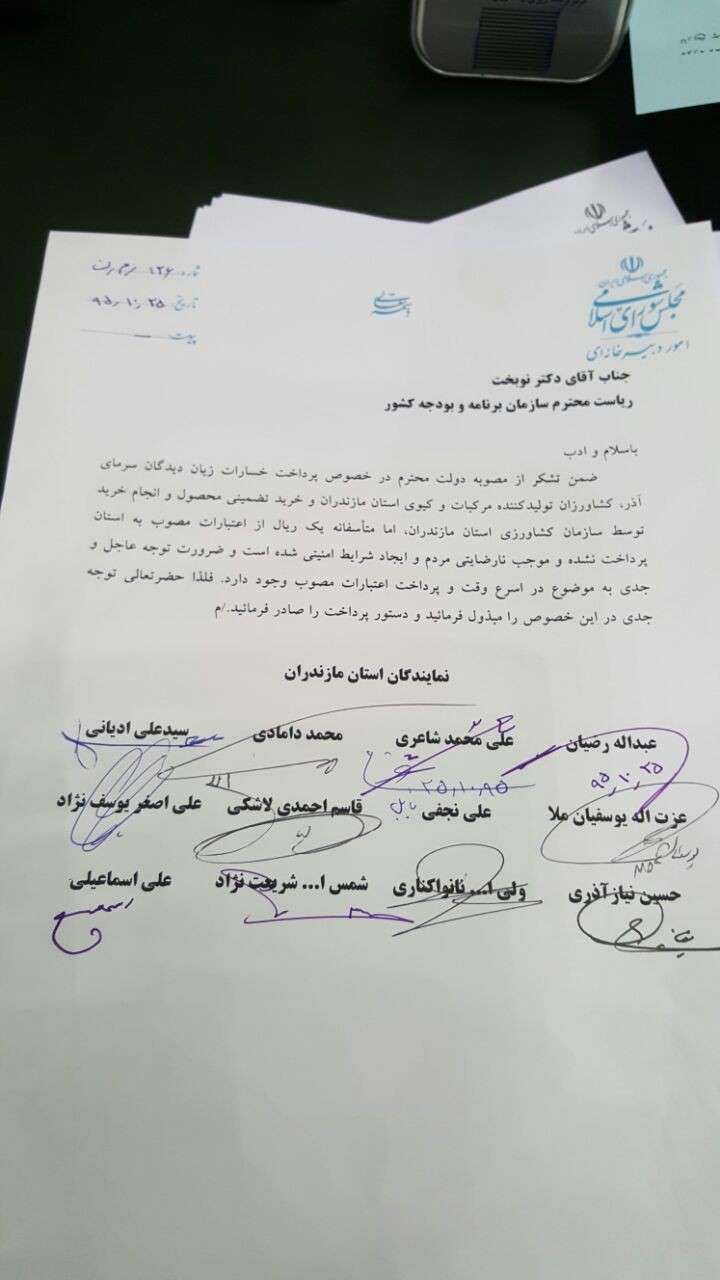 جمهوری اسلامی ایران
مجلس شورای اسلامی
امور دبیرخانه‌ای
شماره: ۱۲۶
تاریخ: ۹۵/۱۰/۲۵
پیوست:
جناب آقای دکتر نوبخت
ریاست محترم سازمان برنامه و بودجه کشور
باسلام و ادب
ضمن تشکر از مصوبه دولت محترم در خصوص پرداخت خسارات زیان دیدگان سرمای
آذر، کشاورزان تولیدکننده مرکبات و کیوی استان مازندران و خرید تضمینی محصول و انجام خرید
توسط سازمان کشاورزی استان مازندران، اما متأسفانه یک ریال از اعتبارات مصوب به استان
پرداخت نشده و موجب نارضایتی مردم و ایجاد شرایط امنیتی شده است و ضرورت توجه عاجل و
جدی به موضوع در اسرع وقت و پرداخت اعتبارات مصوب وجود دارد. فلذا حضرتعالی توجه
جدی در این خصوص را مبذول فرمائید و دستور پرداخت را صادر فرمائید./م
نمایندگان استان مازندران
عبداله رضیان علی محمد شاعری محمد دامادی سیدعلی ادیانی
۹۵/۱۰/۲۵ ۲۵/۱۰/۹۵
عزت اله یوسفیان ملا علی نجفی قاسم احمدی لاشکی علی اصغر یوسف نژاد
حسین نیاز آذری ولی ا... نانواکناری شمس ا... شریعت نژاد علی اسماعیلی